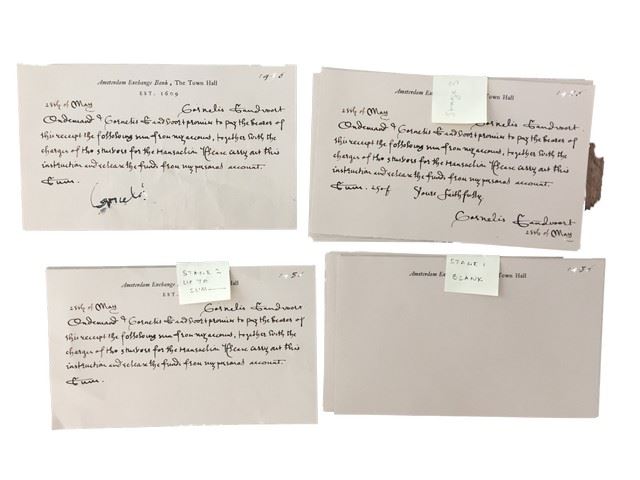 Amsterdam Exchange Bank, The Town Hall
EST. 1609
28th of May
Cornelis Sandvoort
Ondemand I Cornelis Sandvoort promise to pay the bearer of
this receipt the following sum from my account, together with the
charges of two stuivers for the transaction Please carry out this
instruction and release the funds from my personal account.
Sum.
Corneli
Amsterdam Hall
Stage 3
28th of May
Cornelis Sandvoort
Ondemand I Cornelis Sandvoort promise to pay the bearer of
this receipt the following sum from my account, together with the
charges of two stuivers for the transaction Please carry out this
instruction and release the funds from my personal account.
Sum. 250f Yours Faithfully
Cornelis Sandvoort
28th of May
Amsterdam Exchange Hall
EST.
STAGE 2
UP TO
SUM
28th of May
Cornelis Sandvoort
Ondemand I Cornelis Sandvoort promise to pay the bearer of
this receipt the following sum from my account, together with the
charges of two stuivers for the transaction Please carry out this
instruction and release the funds from my personal account.
Sum.
Amsterdam Town Hall
STAGE 1
BLANK